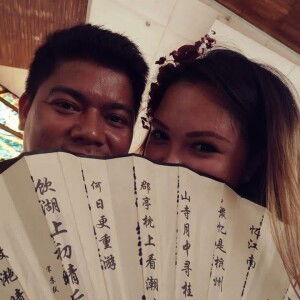 憶江南
最憶是杭州
山寺月中尋桂
郡亭枕上看潮
何日更重游
飲湖上初晴
瀲灧晴